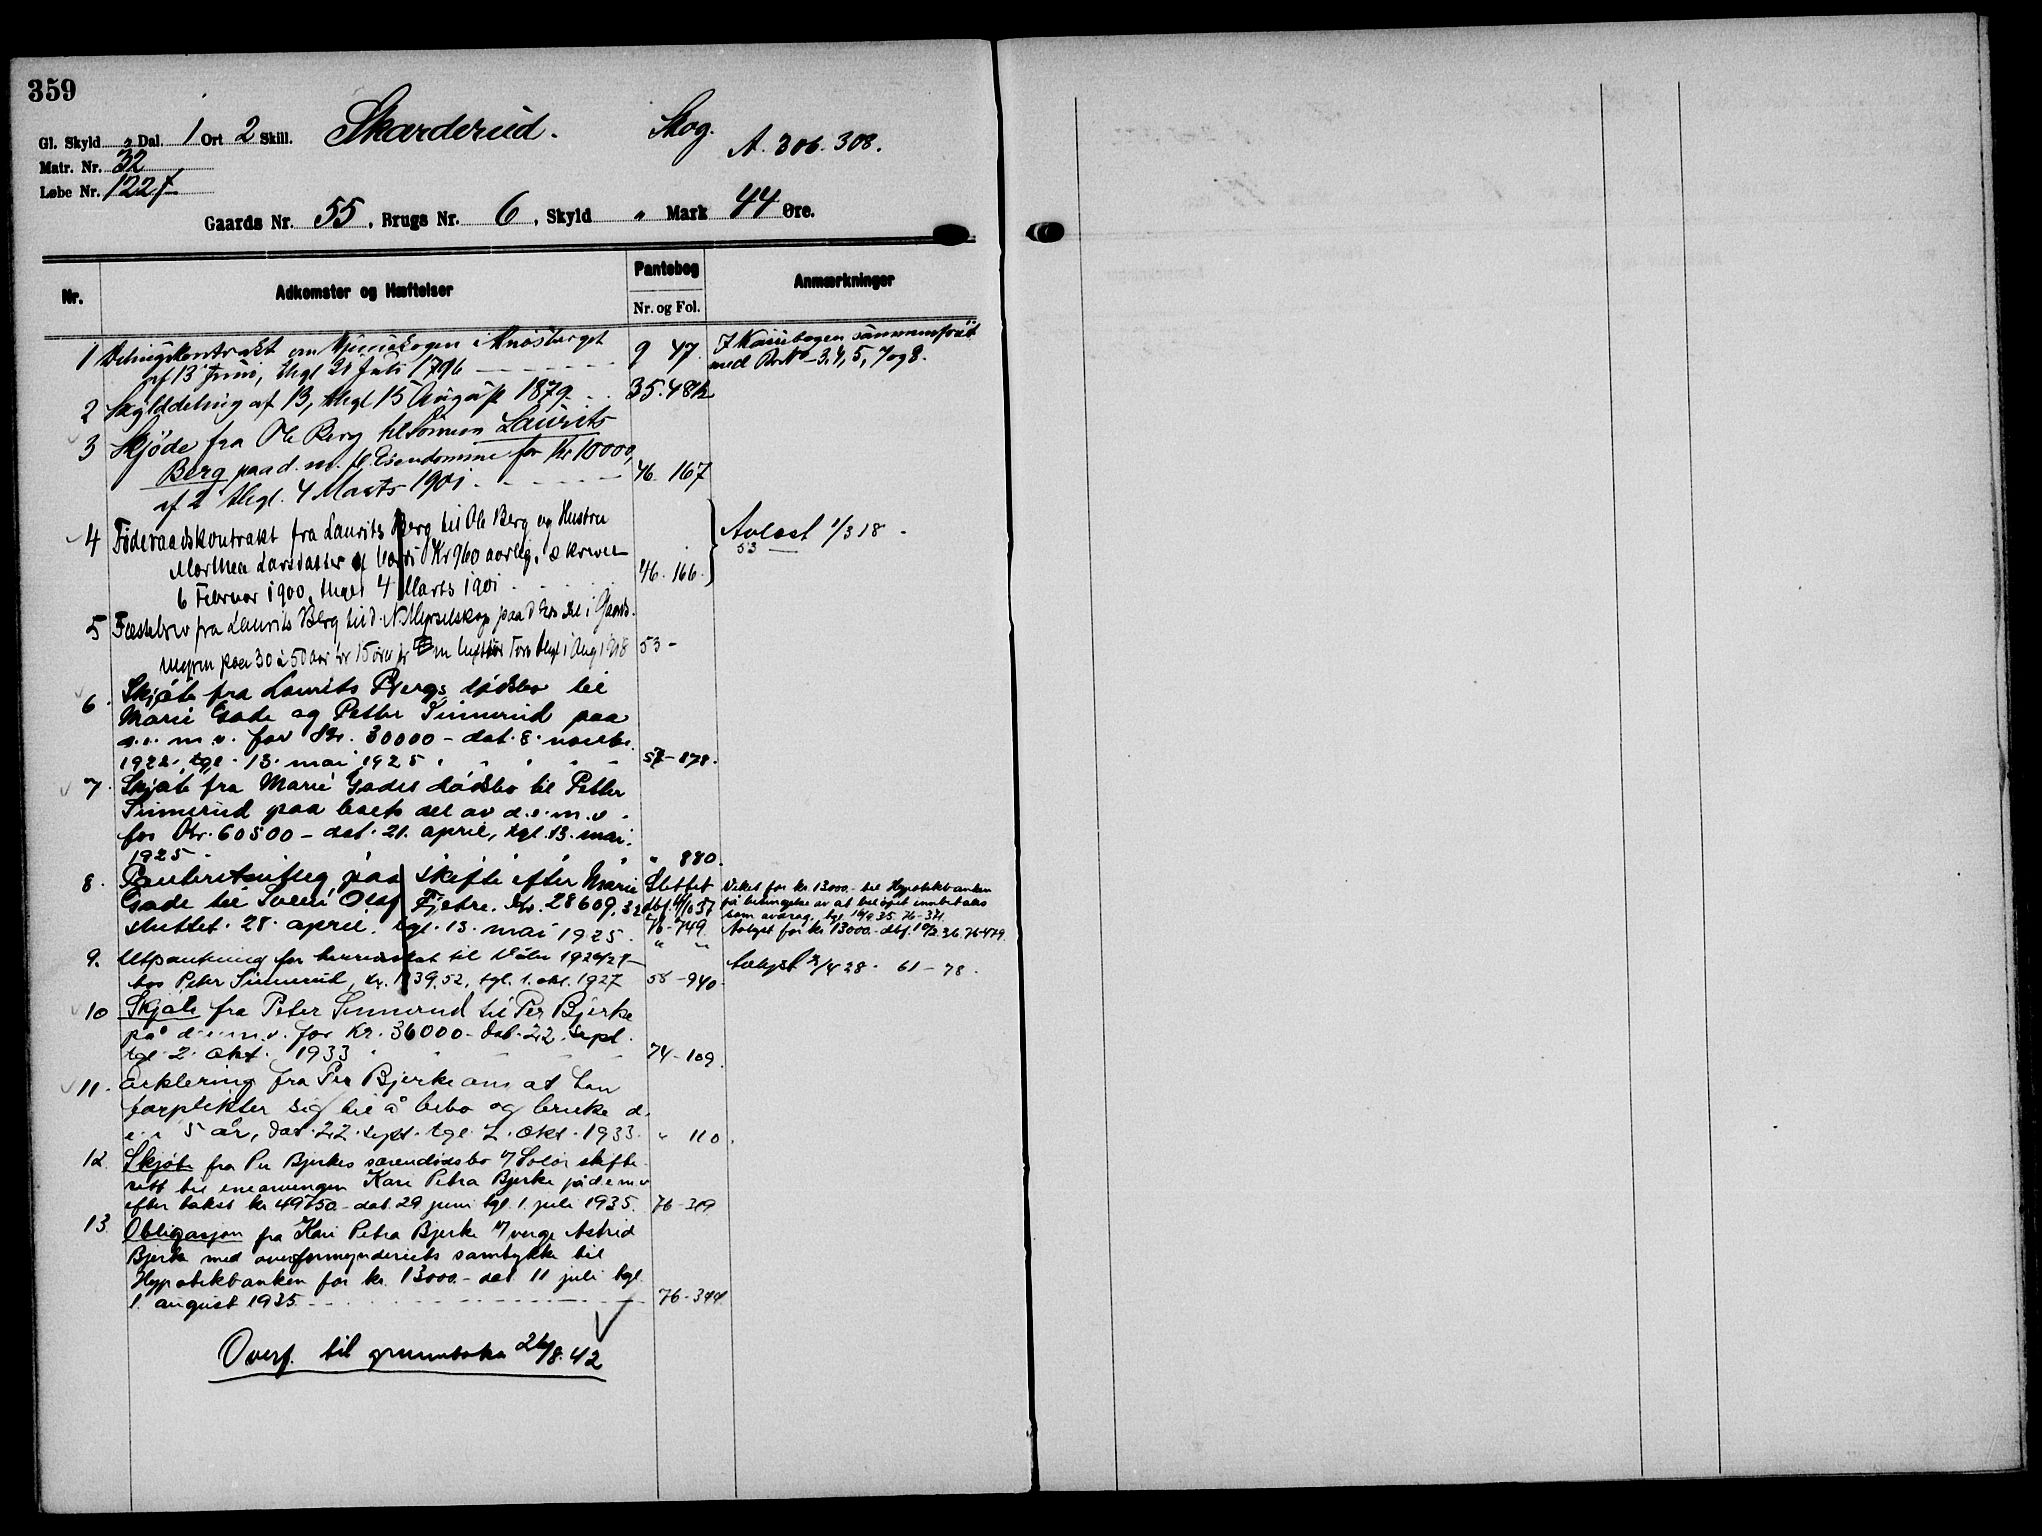 359
Gl. Skyld „ Dal. 1 Ort 2 Skill. Skarderud. Skog. A. 306. 308.
Matr. Nr. 32
Løbe Nr. 122f
Gaards Nr. 55, Brugs Nr. 6, Skyld „ Mark 44 Øre.
Nr. Adkomster og Hæftelser Pantebog Anmærkninger
Nr. og Fol.
1 Delingskontrakt om i Knøsberget 9 47 I Kassebogen sammenført
af 13 Juni, thgl 21 Juli 1796 med Br No 3, 4, 5, 7 og 8.
2 Skylddeling af 13, thgl 15 August 1879 35. 481b
3 Skjøde fra Ole Berg til Sønnen Laurits
Berg paa d. m. fl. Eiendomme for Kr 10000, 46. 167
af 2 thgl. 4 Marts 1901
4 Føderaadskontrakt fra Laurits Berg til Ole Berg og Hustru Avløst 1/3 18
Marthea Larsdatter af Værdi Kr 960 aarlig, skrevet 53
6 Februar 1900, thgl 4 Marts 1901 46. 166.
5 Fæstebrev fra Laurits Berg til d. N. Myrselskap paa Del i Gaards-
myren paa 30 à 50 aar for 15 øre pr thgl 1 Aug 1918 53 -
6. Skjøte fra Laurits Bergs dødsbo til
Marie Gade og Petter Sinnerud paa
d. e. m. v. for Kr. 30000 - dat. 8. novbr.
1922, tgl. 13. mai 1925 57 - 878.
7. Skjøte fra Marie Gades dødsbo til Petter
Sinnerud paa boets del av d. e. m. v.
for Kr. 60500 - dat. 21. april, tgl. 13. mai.
1925 „ 880.
8. Panterettsutlæg paa skifte efter Marie Slettet Veket for kr. 13000.- til Hypotekbanken
Gade til Svein Olaf Fjetre. Kr. 28609,32 dbf. 4/10 37 på betingelse av at beløpet innbetales
sluttet 28. april. tgl. 13. mai 1925. 76 - 749 som avdrag, tgl 16/9 35. 76 - 371.
„ „ Avlyst for kr 13000.- dbf. 10/2 36. 76-479.
9. Utpantning for herredskat til Våler 1926/27 Avlyst 3/4 28. 61 - 78.
hos Peter Sinnerud, kr. 1939,52, tgl. 1. okt. 1927 58 - 940.
10 Skjøte fra Peter Sinnerud til Per Bjerke
på d. e. m. v. for Kr. 36000 - dat. 22. sept.
tgl. 2. okt. 1933 74 - 109.
11. Erklering fra Per Bjerke om at han
forplikter sig til å bebo og bruke d.
e. i 5 år, dat. 22. sept. tgl. 2. okt. 1933. „ 110.
12. Skjøte fra Per Bjerkes særeiedødsbo v/ Solør skifte-
rett til enearvingen Kari Petra Bjerke på d e m v
efter takst kr 49750.- dat. 29 juni tgl. 1. juli 1935. 76 - 319
13. Obligasjon fra Kari Petra Bjerke v/ verge Astrid
Bjerke med overformynderiets samtykke til
Hypotekbanken for kr. 13000.- dat 11 juli tgl.
1. august 1935. 76 - 344.
Overf. til grunnboka 26/8. 42